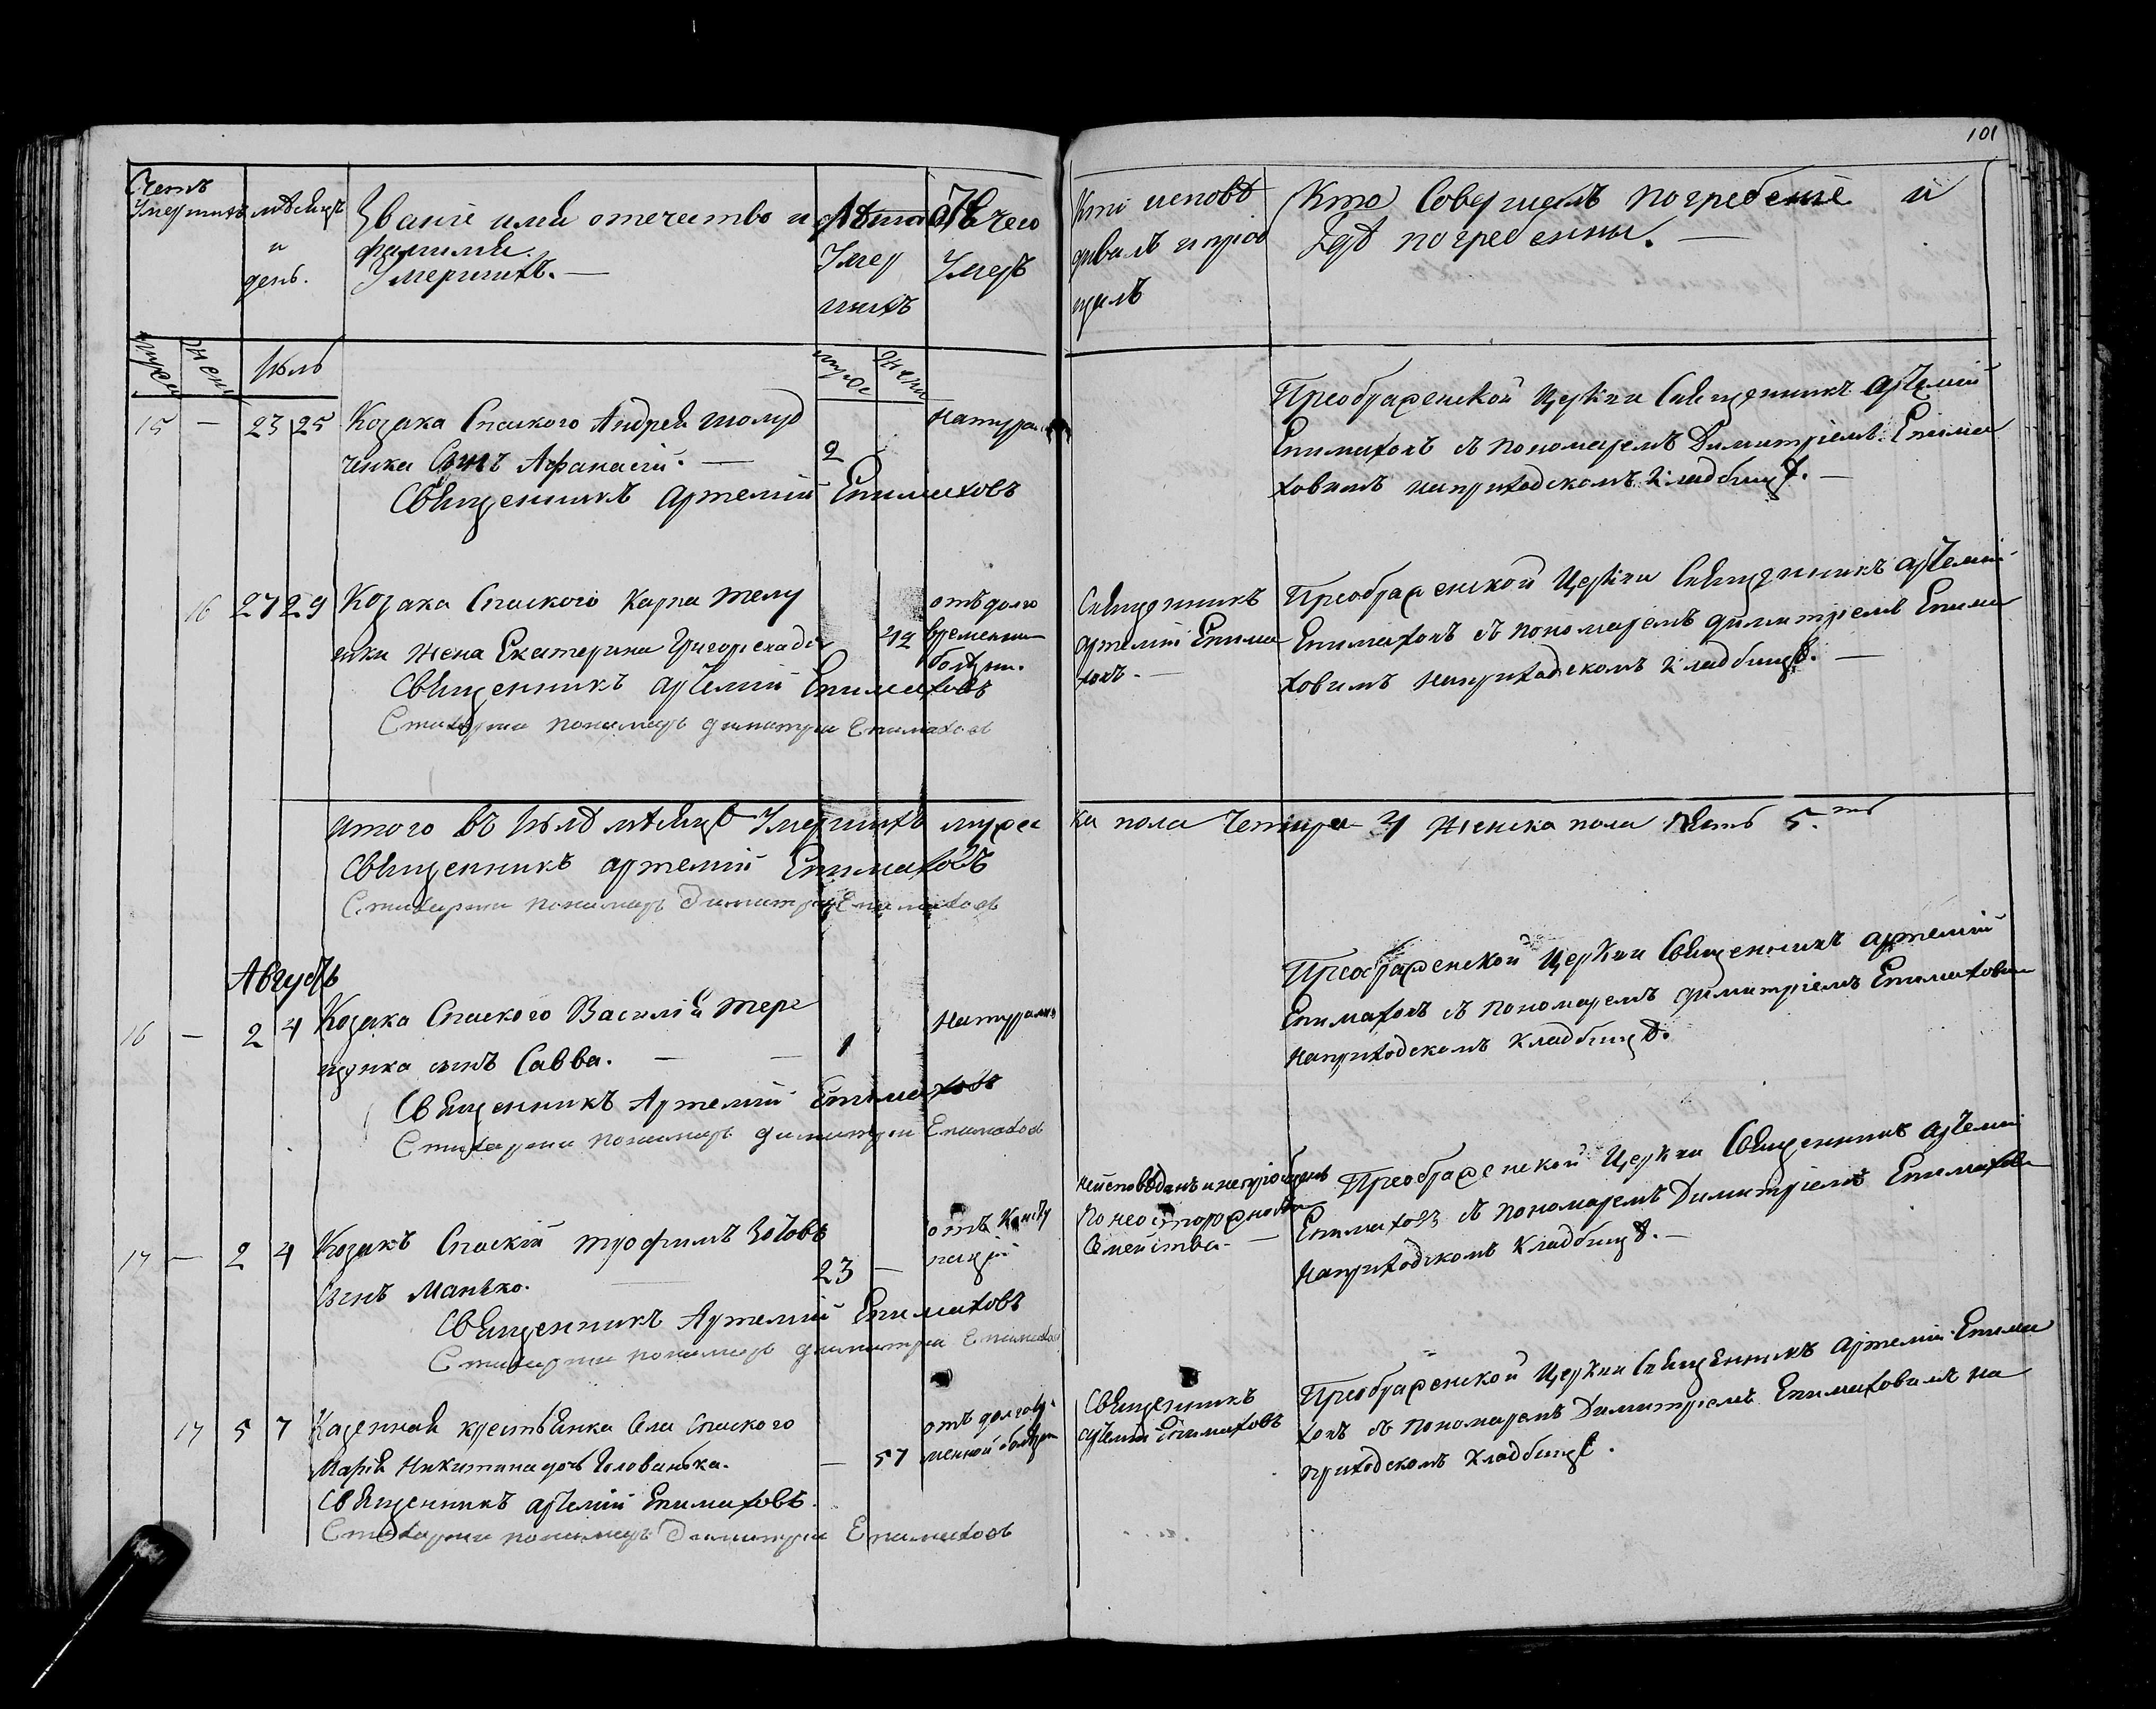 101
Счетъ
Умершихъ
мѣсяцъ
и
день.
Званіе имя отечество и
фамилия.
Умершихъ.—
Лѣта
Умер
шихъ
Отъ чего
Умеръ
Кто исповѣ
дывалъ и приоб
щалъ
Кто Совершалъ погребеніе и
Гдѣ погребенны.—
мужеск
женск
Июль
мужес
женск
15 — 23 25 Козака Спаского Андрея шолуд
ченка Сынъ Афанасій.— 2
Натурал
Священникъ Артемий Епимаховъ
Преображенской Церкви Священникъ Артемий
Епимаховъ съ пономаремъ Димитріемъ Епима
ховимъ наприходскомъ кладбищѣ.—
16 27 29 Козака Спаского Карпа телу
жена Екатерина Григориева дочь 42
отъ долго
временни
болѣзни.
Священникъ Артемий Епимаховъ
Стихарни пономаръ димитри Епимахов
Священникъ
Артемий Епима
ховъ.—
Преображенской Церкви Священникъ Артемий
Епимаховъ съ пономаремъ димитріемъ Епима
ховимъ наприходскомъ кладбищѣ.—
итого въ Июлѣ мѣсяцѣ Умершихъ мужес ка пола Четыре 4 женска пола пять 5.ть
Священникъ артемий Епимаховъ
Стихарни пономаръ Димитри Епимахов
Августъ
16 — 2 4 Козака Спаского Василія тере
щенка сынъ Савва.— — 1
Натурально
Священникъ Артемий Епимаховъ
Стихарни пономаръ димитри Епимахов
Преображенской Церкви Священникъ артемий
Епимаховъ съ пономаремъ димитріемъ Епимахови
наприходскомъ кладбищѣ.
17 — 2 4 Козакъ Спаский трофимъ Зотовъ
Сынъ Манько. 23 —
отъ
Священникъ Артемий Епимаховъ
Стихарни пономаръ димитри Епимахов
Неисповѣданъ и неприобщенъ
По неосторожности
Семейства.—
Преображенской Церкви Священникъ Артемий
Епимаховъ съ пономаремъ Димитріемъ Епимахови
наприходскомъ кладбищѣ.—
17 5 7 Казенная крестьянка Села Спаского
Марія Никитина дочь Голованька. — 57
отъ долговр
менной болѣзни
Священникъ Артемий Епимаховъ.
Стихарни пономаръ Димитри Епимахов
Священникъ
Артемий Епимаховъ
Преображенской Церкви Священникъ Артемий Епима
ховъ съ пономаремъ Димитріемъ Епимаховимъ на
приходскомъ кладбищѣ.